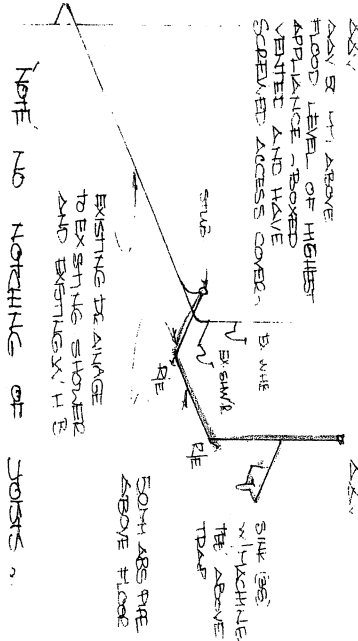 AAV
AAV & M. ABOVE
FLOOD LEVEL OF HIGHEST
APPLIANCE - BOXED
VENTED AND HAVE
SCREWED ACCESS COVER.
STUB
EX. WHB
EX. SHW'R
R/E
R/E
AAV
SINK (SS)
W/MACHINE
TEE ABOVE
TRAP
50MM ABS PIPE
ABOVE FLOOR
EXISTING DRAINAGE
TO EXISTING SHOWER
AND EXISTING W.H.B
NOTE NO NOTCHING OF JOISTS.